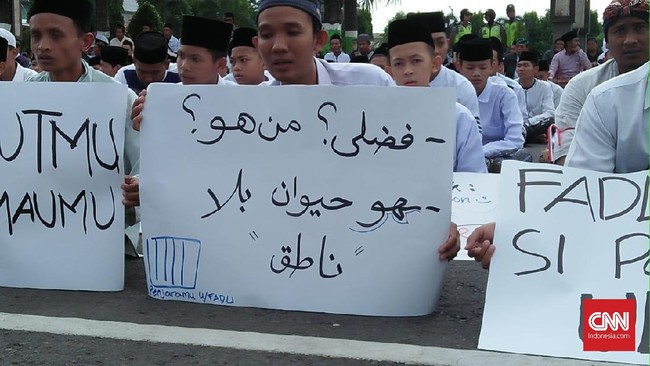 UTMU
MAUMU
- فضلى؟ من هو؟
- هو حيوان بلا
"ناطق"
Penjaramu u/FADLI
FADL
SI P
CNN
Indonesia.com